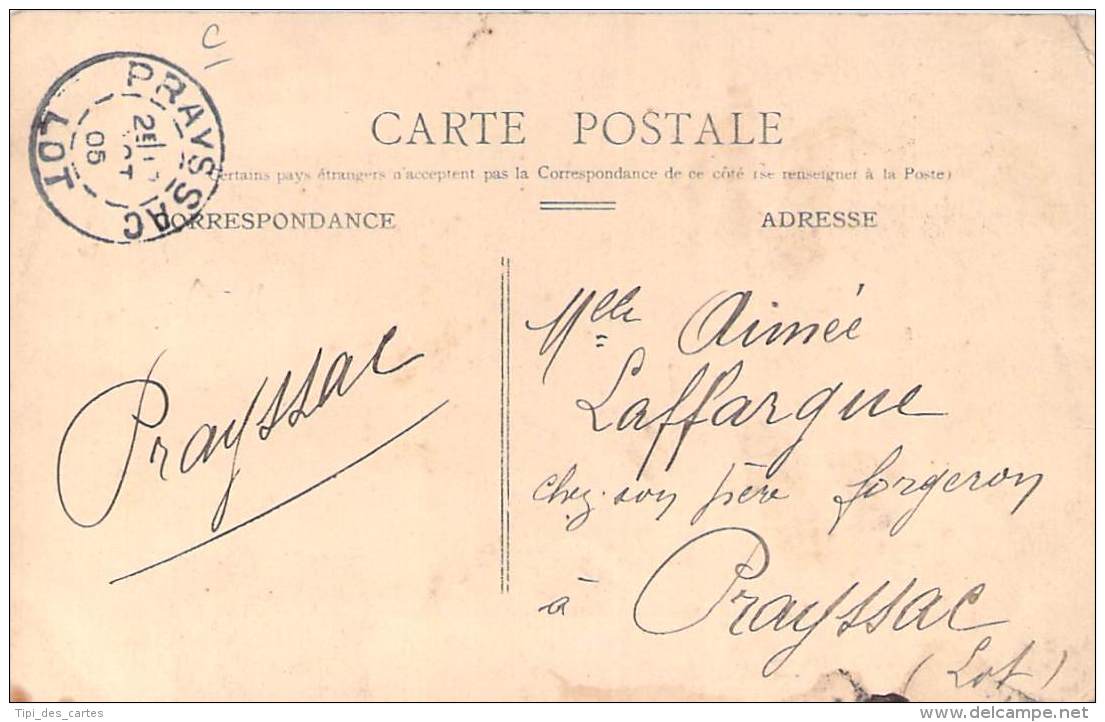 C
PRAYSSAC
LOT
2E
05
CARTE POSTALE
Certains pays étrangers n'acceptent pas la Correspondance de ce côté (se renseigner à la Poste)
CORRESPONDANCE
ADRESSE
Prayssac
Melle Aimée
Laffargue
chez son père forgeron
à Prayssac
(Lot)
Tipi_des_cartes
www.delcampe.net